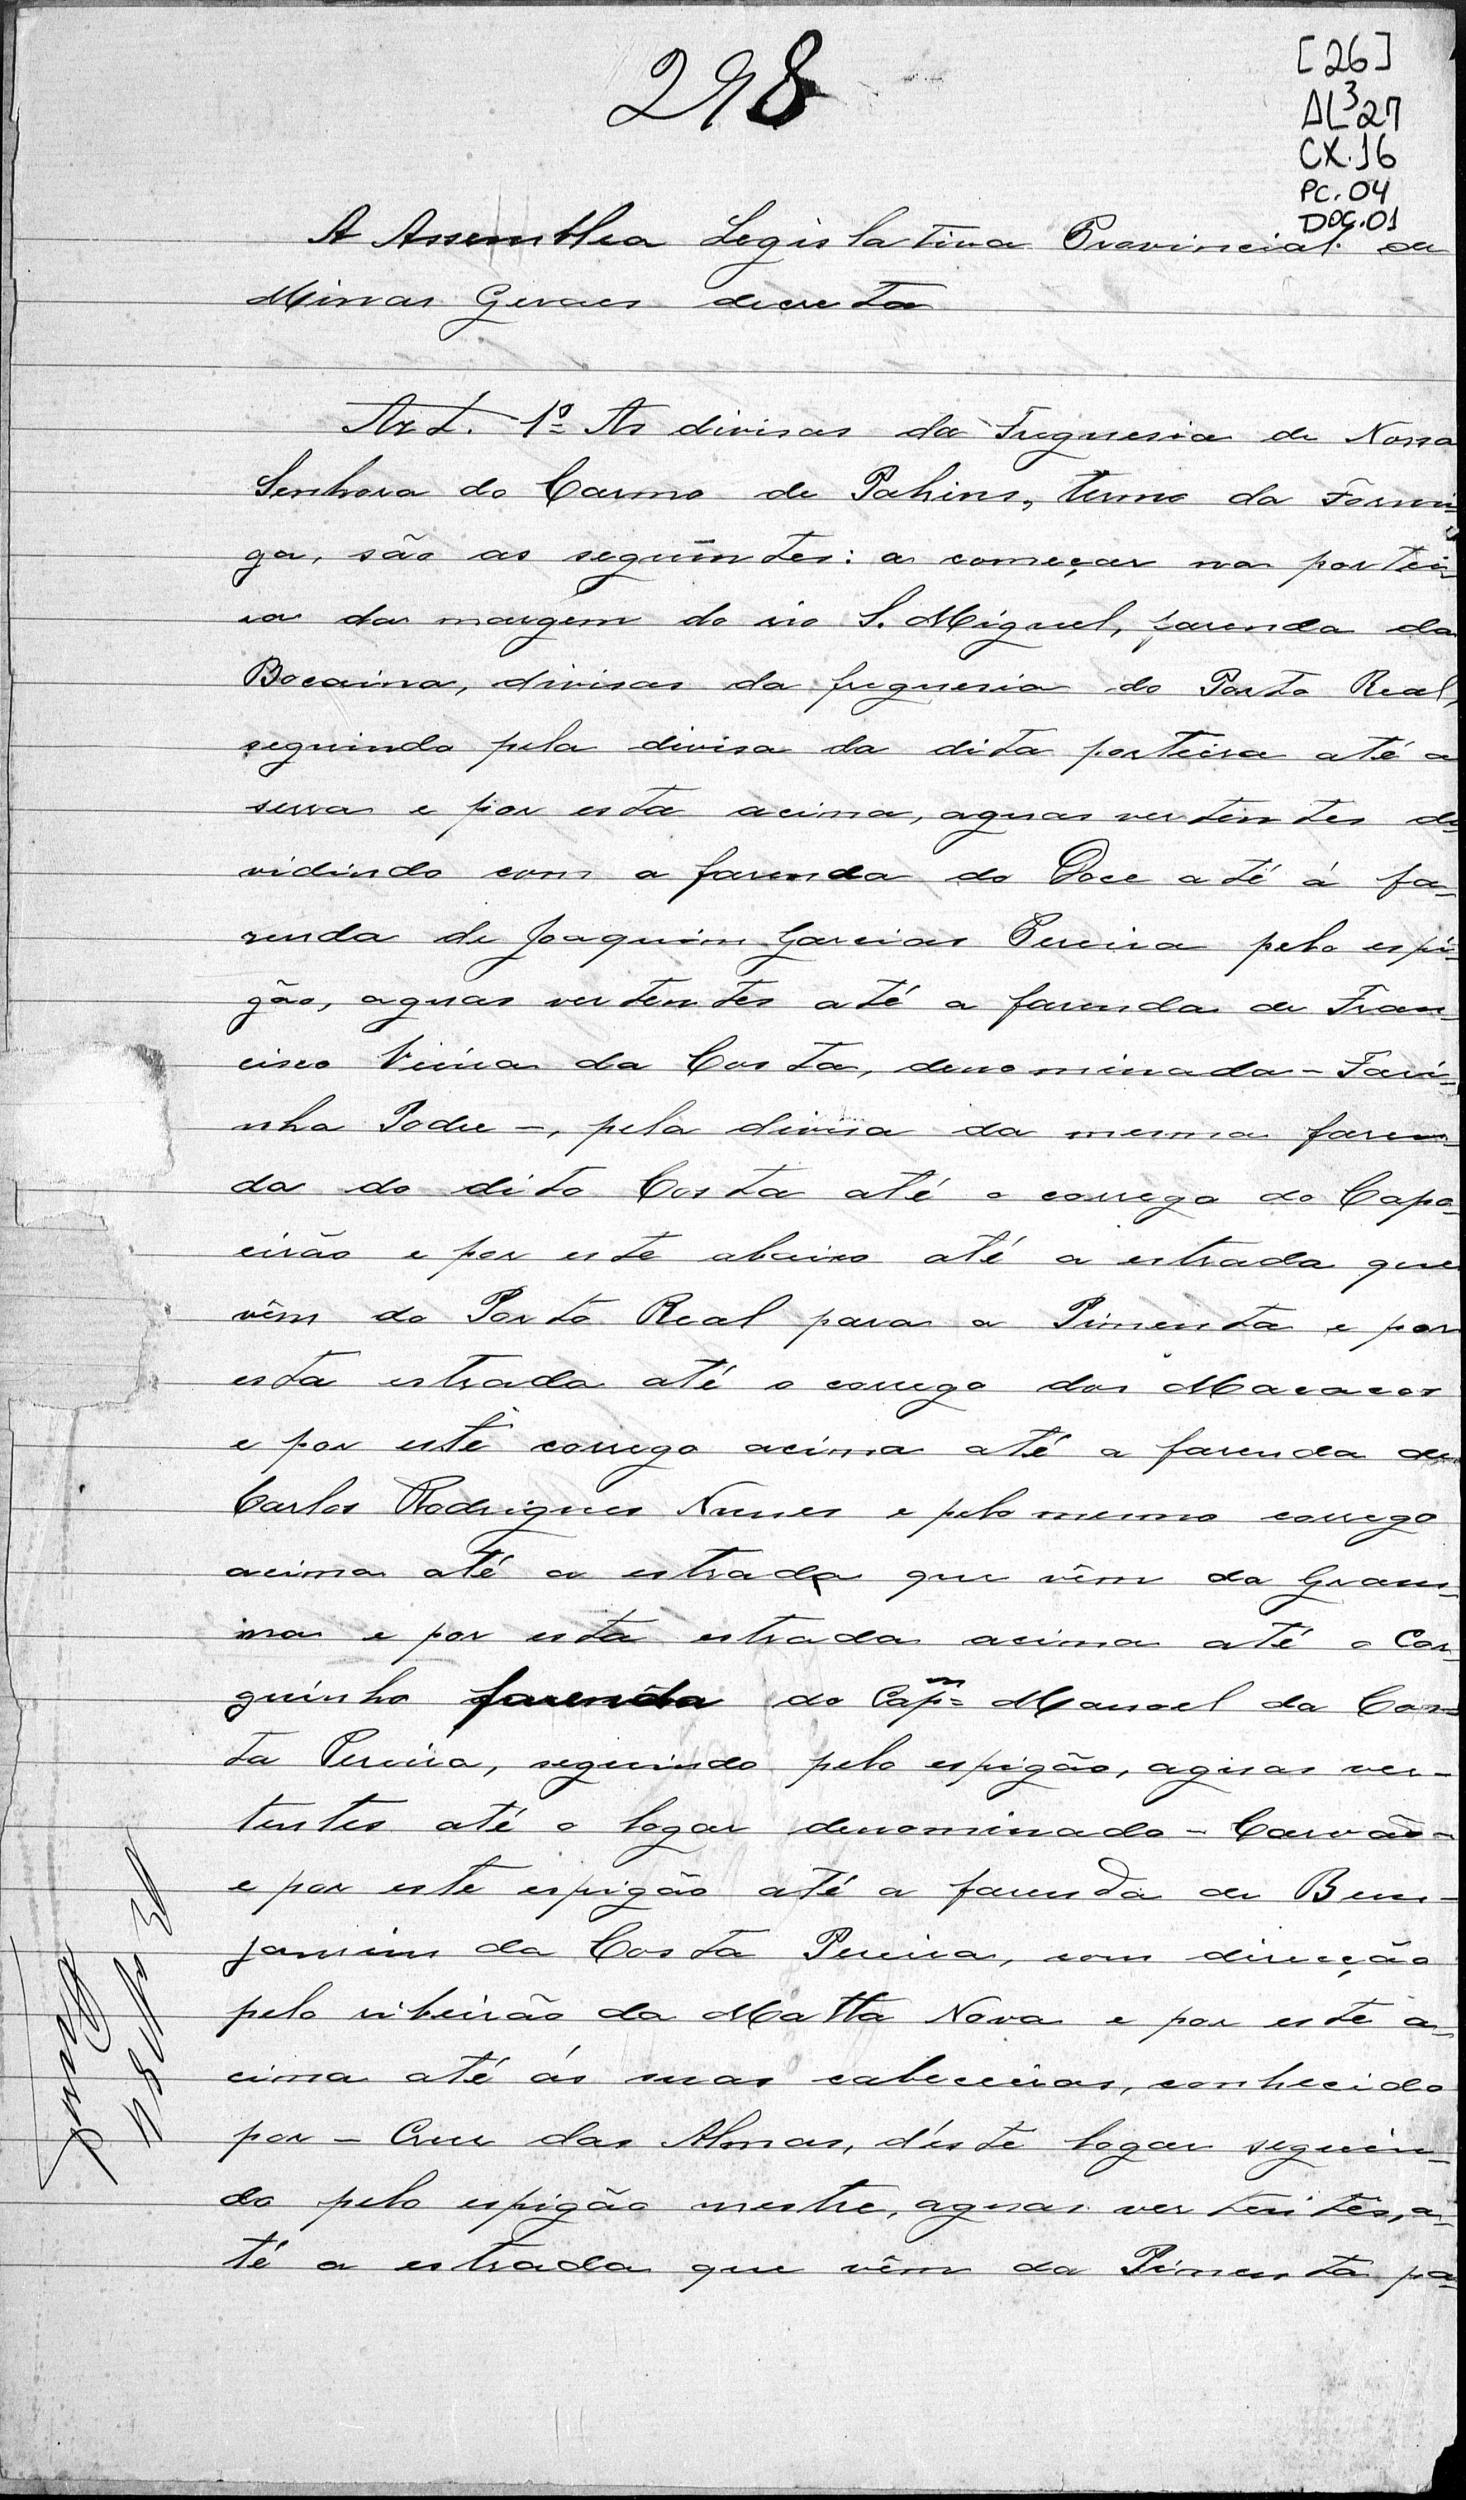 298
[26]
AL³27
CX.16
PC.04
DOC.01
A Assemblea Legislativa Provincial de
Minas Geraes decreta
Art. 1º As divisas da Freguesia de Nossa
Senhora do Carmo de Pahins, termo da Formi-
ga, são as seguintes: a começar na portei-
ra da margem do rio S. Miguel, fazenda da
Bocaina, divisas da freguesia do Porto Real,
seguindo pela divisa da dita porteira até a
serra e por esta acima, aguas vertentes di-
vidindo com a fazenda do Doce até á fa-
zenda de Joaquim Garcias Pereira pelo espi-
gão, aguas vertentes até a fazenda de Fran-
cisco Vieira da Costa, denominada - Fari-
nha Podre -, pela divisa da mesma fazen-
da do dito Costa até o corrego do Capo-
eirão e por este abaixo até a estrada que
vêm do Porto Real para a Pimenta e por
esta estrada até o corrego dos Macacos
e por este corrego acima até a fazenda de
Carlos Rodrigues Nunes e pelo mesmo corrego
acima até a estrada que vêm da Gram-
ma e por esta estrada acima até o Cor-
guinho fazenda do Capm Manoel da Cos-
ta Pereira, seguindo pelo espigão, aguas ver-
tentes até o logar denominado - Carvão -
e por este espigão até a fazenda de Ben-
jamim da Costa Pereira, com direcção
pelo ribeirão da Matta Nova e por este a-
cima até ás suas cabeceiras, conhecido
por - Cruz das Almas, d'este logar seguin-
do pelo espigão mestre, aguas vertentes, a-
té a estrada que vêm da Pimenta pa-